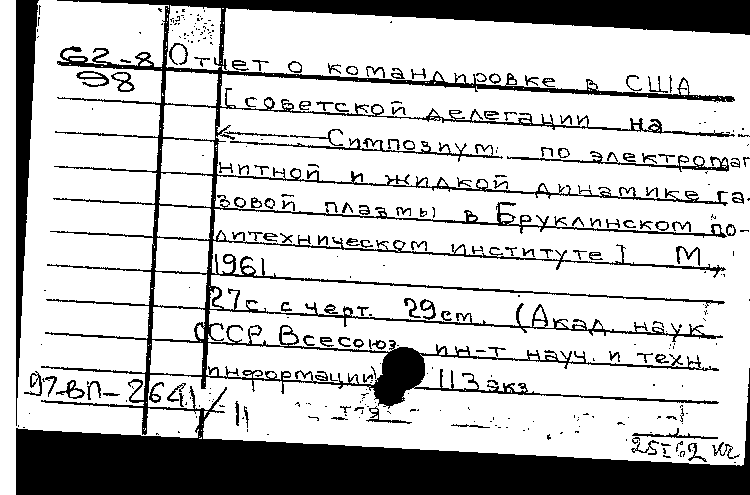 62-8 Отчет о командировке в США
98
[советской делегации на
Симпозиум по электромаг
нитной и жидкой динамике га-
зовой плазмы в Бруклинском по-
литехническом институте] М.,
1961.
27с. с черт. 29см. (Акад. наук
СССР. Всесоюз. ин-т науч. и техн.
информации) 113 экз.
97-ВП-2641/11
25 I 62